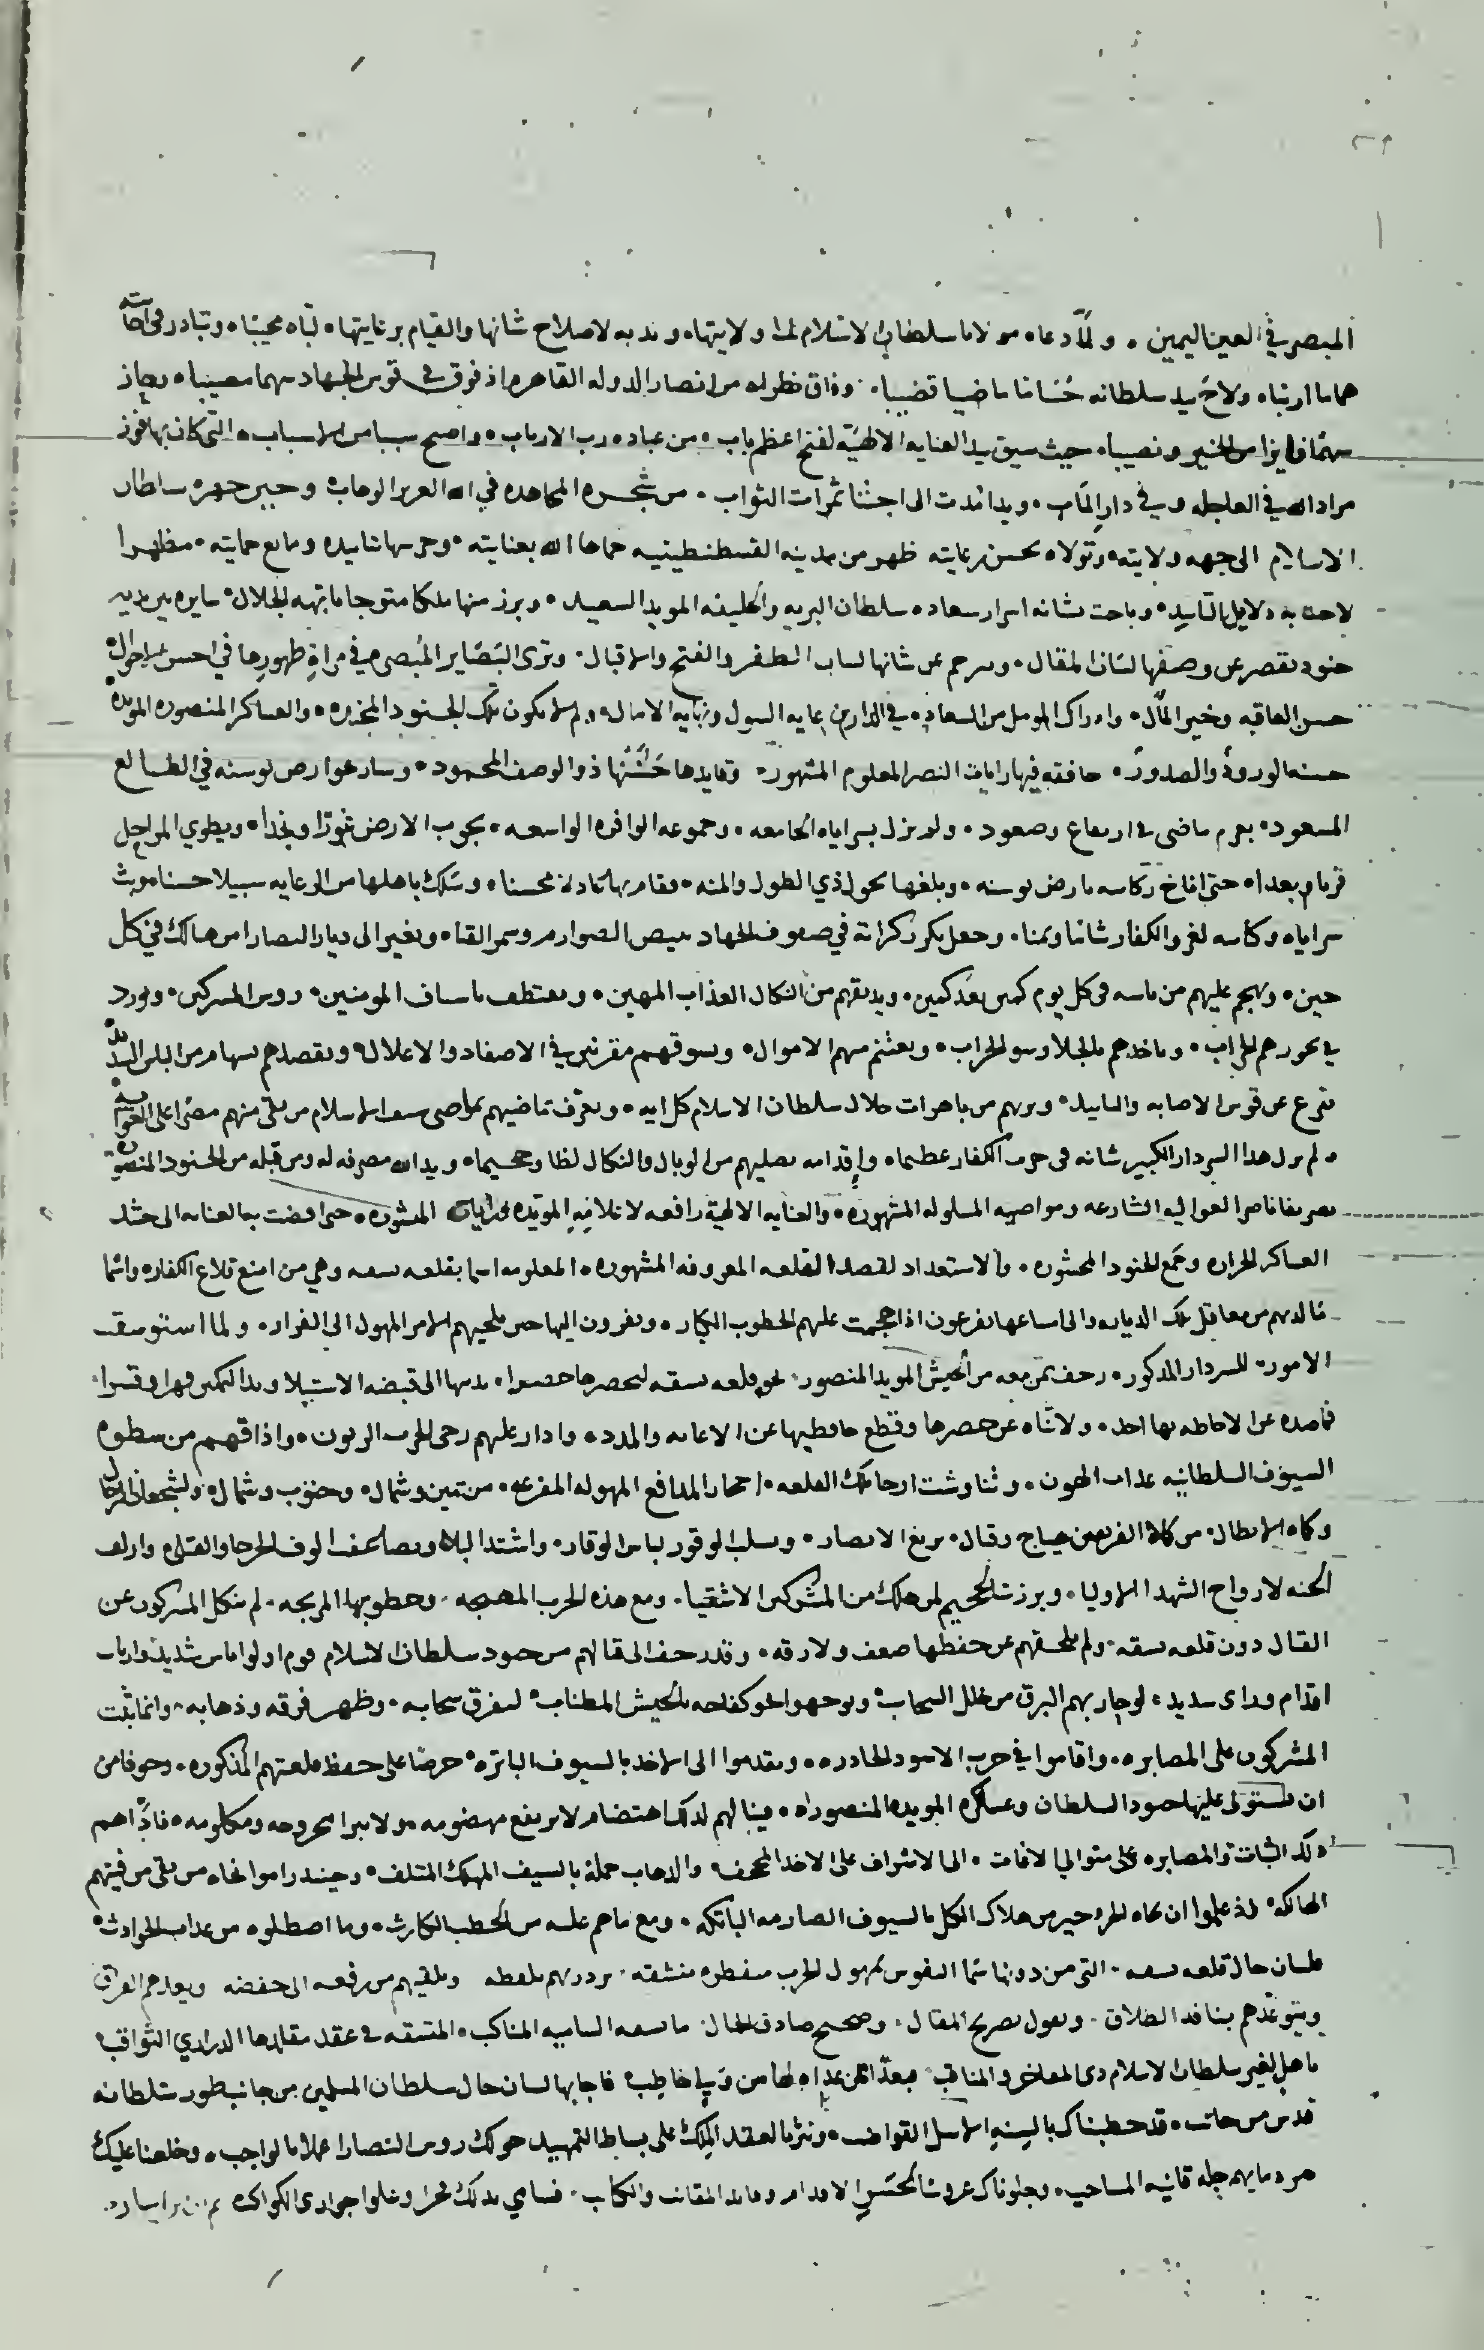 المبصر في العين اليمين ٠ ولما دعاه مولانا سلطان الاسلام لها ولايتها ٠ وندبه لاصلاح شانها والقيام برعايتها ٠ لباه مجيبا ٠ وتبادر في اجابته
هماما اريبا ٠ ولاح بيد سلطانه حساما ماضيا قضيبا ٠ وفاق نظراه من انصار الدوله القاهره اذ فوق في قوس الجهاد سهما مصيبا ٠ وحاز
سهما فايزا من الخير ونصيبا ٠ حيث سبق بيد العنايه الالهية لفتح اعظم باب ٠ من عباده رب الارباب ٠ واصبح سببا من الاسباب ٠ التي كان بها فوز
مراد الله في العاجله وفي دار المآب ٠ ويدا مدت الى اجتنا ثمرات الثواب ٠ من شجره المجاهده في الله العزيز الوهاب ٠ وحين جهزه سلطان
الاسلام الى جهه ولايته ٠ وتولاه بحسن رعايته ظهر من مدينه القسطنطينيه حماها الله بعنايته ٠ وحرسها بتاييده ومانع حمايته ٠ مظهرا
لاحت به دلايل التاييد ٠ وباحت بشانه اسرار سعاده سلطان البريه والخليفه المويد السعيد ٠ وبرز منها ملكا متوجا بابهه الجلال ٠ سايره بين يديه
جنود يقصر عن وصفها لسان المقال ٠ ويترجم عن شانها لسان الظفر والفتح والاقبال ٠ وترى البصاير المبصره في مراة ظهورها في احسن
حسن العاقبه وخير المآل ٠ وادراك المومل من السعاده في الدارين غايه السول ونهايه الامال ٠ ولم لا يكون تلك الجنود المجنده ٠ والعساكر المنصوره المويده
حسنه الورود والصدور ٠ خافقه فيها رايات النصر المعلوم المشهور ٠ وقايدها حسن ذو الوصف المحمود ٠ وسار عوارض بوسنه في الطالع
المسعود ٠ بعزم ماضي في ارتفاع وصعود ٠ ولم يزل بسراياه الجامعه ٠ وجموعه الوافره الواسعه ٠ يجوب الارض غورا ونجدا ٠ ويطوي المراحل
قربا وبعدا ٠ حتى اناخ ركابه بارض بوسنه ٠ وبلغها بحول ذي الطول والمنه ٠ فقام بها عادلا محسنا ٠ وسلك باهلها من الرعايه سبيلا حسنا ٠ وبث
سراياه وكتايبه لغزو الكفار شاما ويمنا ٠ وجعل يكرر كراته في صفوف الجهاد ببيض الصوارم وسمر القنا ٠ ويغير الى ديار النصارا من هنالك في كل
حين ٠ ويهجم عليهم من باسه في كل يوم كمين بعد كمين ٠ ويذيقهم من النكال العذاب المهين ٠ ويقتطف باسياف المومنين ٠ روس المشركين ٠ ويورد
في نحورهم الحراب ٠ وياخذهم بالجلا وسو الخراب ٠ ويغتنم منهم الاموال ٠ ويسوقهم مقرنين في الاصفاد والاغلال ٠ ويقصدهم بسهام من الباس الشديد
تنزع عن قوس الاصابه والتاييد ٠ ويريهم من باهرات جلال سلطان الاسلام كل ايه ٠ ويعرف بماضيهم بمواضي سيف الاسلام من بقي منهم مصرا على الغوايه
٠ ولم يزل هذا السردار الكبير شانه في حرب الكفار عظيما ٠ واقدامه يصليهم من الوبال والنكال لظا وجحيما ٠ ويد الله مصرفه له ومن قبله من الجنود المنصوره
تصريفا ناصرا لعواليه الشارعه ومواضيه المسلوله المشهوره ٠ والعنايه الالهية رافعه لاعلامه المويده المنشوره ٠ حتى افضت به العنايه الى حشد
العساكر الجراره وجمع الجنود المحشوره ٠ والاستعداد لقصد القلعه المعروفه المشهوره ٠ المعلومه اسما بقلعه بسقه وهي من امنع قلاع الكفار ٠ واشما
ما لديهم من معاقل تلك الديار ٠ والى اتساعها يفزعون اذا هجمت عليهم الخطوب الكبار ٠ ويفرون اليها حين يلجيهم الامر المهول الى الفرار ٠ ولما استوسقت
الامور ٠ للسردار المذكور ٠ زحف بمن معه من الجيش المويد المنصور ٠ نحو قلعه بسقه ليحصرها حصرا ٠ يدنيها الى قبضه الاستيلا ويد التمكين قهرا وقسرا ٠
فما صده عن الاحاطه بها احد ٠ ولا ثناه عن حصرها وقطع حافظيها عن الاعانه والمدد ٠ وادار عليهم رحى الحرب الزبون ٠ واذاقهم من سطوه
السيوف السلطانيه عذاب الهون ٠ وتناوشت ارجا تلك القلعه ٠ احجار المدافع المهوله المفزعه ٠ من يمين وشمال ٠ وجنوب وشمال ٠ ولشجعان الرجال
وكماه الابطال ٠ من كلا الفريقين هياج وقتال ٠ يزيغ الابصار ٠ ويسلب الوقور لباس الوقار ٠ واشتد البلا وتضاعف الوف الجرحا والقتلى وازلفت
الجنه لارواح الشهدا الاوليا ٠ وبرزت الجحيم لمن هلك من المشركين الاشقيا ٠ ومع هذه الحرب المهيجه ٠ وخطوبها المزعجه ٠ لم ينكل المشركون عن
القتال دون قلعه بسقه ٠ ولم يلحقهم عن حفظها ضعف ولا رقه ٠ وقد زحف الى قتالهم من جنود سلطان الاسلام قوم اولوا باس شديد ٠ وارباب
اقدام وراى سديد ٠ لو جاز بهم البرق من خلل السحاب ٠ وتوجهوا نحو كفاحه بالجيش المطناب ٠ لتفرق سحابه ٠ وظهر فرقه وذهابه ٠ وانما ثبت
المشركون على المصابره ٠ واقاموا في حرب الاسود الخادره ٠ وتقدموا الى الاخذ بالسيوف الباتره ٠ حرصا على حفظ قلعتهم المذكوره ٠ وخوفا من
ان تستولي عليها جنود السلطان وعساكره المويده المنصوره ٠ فينالهم لذلك اهتضام لا يرتفع مهضومه ٠ ولا يبرا مجروحه ومكلومه ٠ فاداهم
ذلك الثبات والمصابره على متوالي الافات ٠ الى الاشراف على الاخذ المجحف والذهاب جمله بالسيف المهلك المتلف ٠ وحينئذ راموا نجاه من بقي من فيتهم
الهالكه ٠ اذ علموا ان نجاه الفرد خير من هلاك الكل بالسيوف الصارمه الباتكه ٠ ومع ما هم عليه من الخطب الكارث ٠ وما اصطلوه من عذاب الحوادث ٠
فلسان حال قلعه بسقه ٠ التي من دونها سما النفوس بمهول الحرب منفطره منشقه ٠ يزدريهم بلفظه ويلقيهم من رفعه الى خفضه ويعدهم الفراق
ويتوعدهم بنافذ الطلاق ٠ ويقول بصريح المقال ٠ وصحيح صادق الحال ما بسقه الساميه المناكب ٠ المتسقه في عقد مقلدها الدراري الثواقب ٠
باهل لغير سلطان الاسلام ذي المفاخر والمناقب ٠ فاجابها لسان حال سلطان المسلمين من جانب طور سلطانه
قدس من جانب ٠ قد خطبناك بالسنه الاسل القواضب ٠ ونثرنا لعقد الملك على بساط التمهيد حولك روس النصارا عملا بالواجب ٠ وخلعنا عليك
من دمايهم حله قانيه المساحب ٠ وجلوناك عروسا فسامي بذلك فخرا وعلوا جواري الكواكب